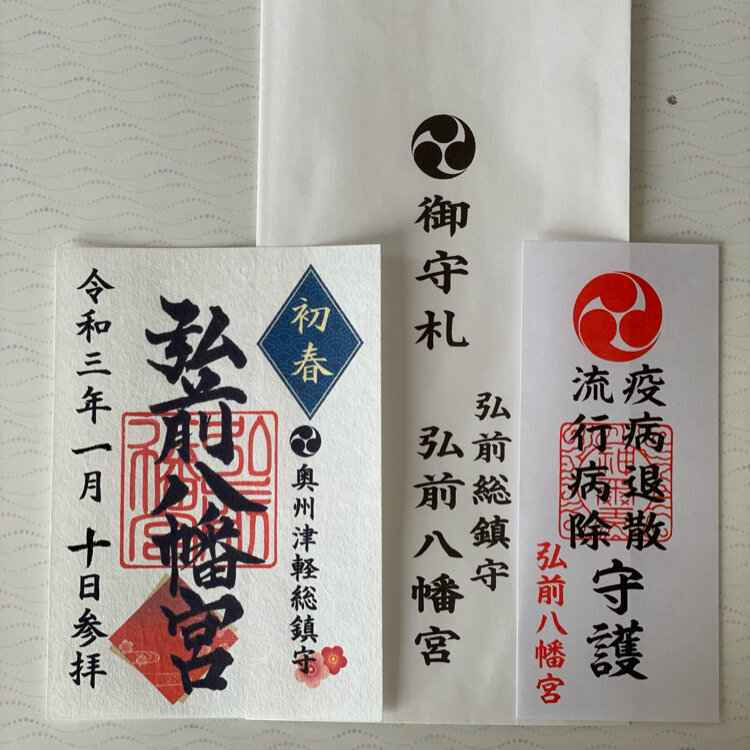 初春
奥州津軽総鎮守
弘前八幡宮
令和三年一月十日参拝
御守札
弘前総鎮守
弘前八幡宮
疫病退散
流行病除
守護
弘前八幡宮